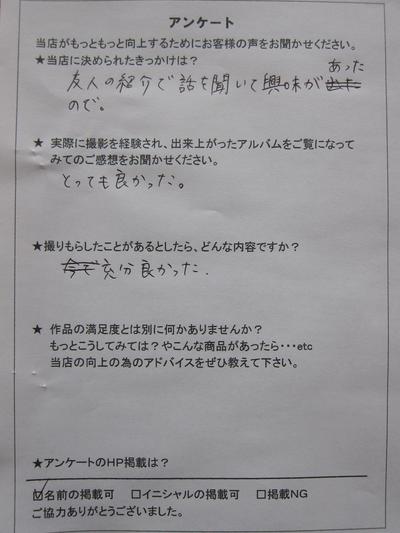 アンケート
当店がもっともっと向上するためにお客様の声をお聞かせください。
★当店に決められたきっかけは？
あった
友人の紹介で話を聞いて興味が
ので。
★ 実際に撮影を経験され、出来上がったアルバムをご覧になって
みてのご感想をお聞かせください。
とっても良かった。
★撮りもらしたことがあるとしたら、どんな内容ですか？
充分良かった.
★ 作品の満足度とは別に何かありませんか？
もっとこうしてみては？やこんな商品があったら・・・etc
当店の向上の為のアドバイスをぜひ教えて下さい。
★アンケートのHP掲載は？
☑名前の掲載可 □イニシャルの掲載可 □掲載NG
ご協力ありがとうございました。